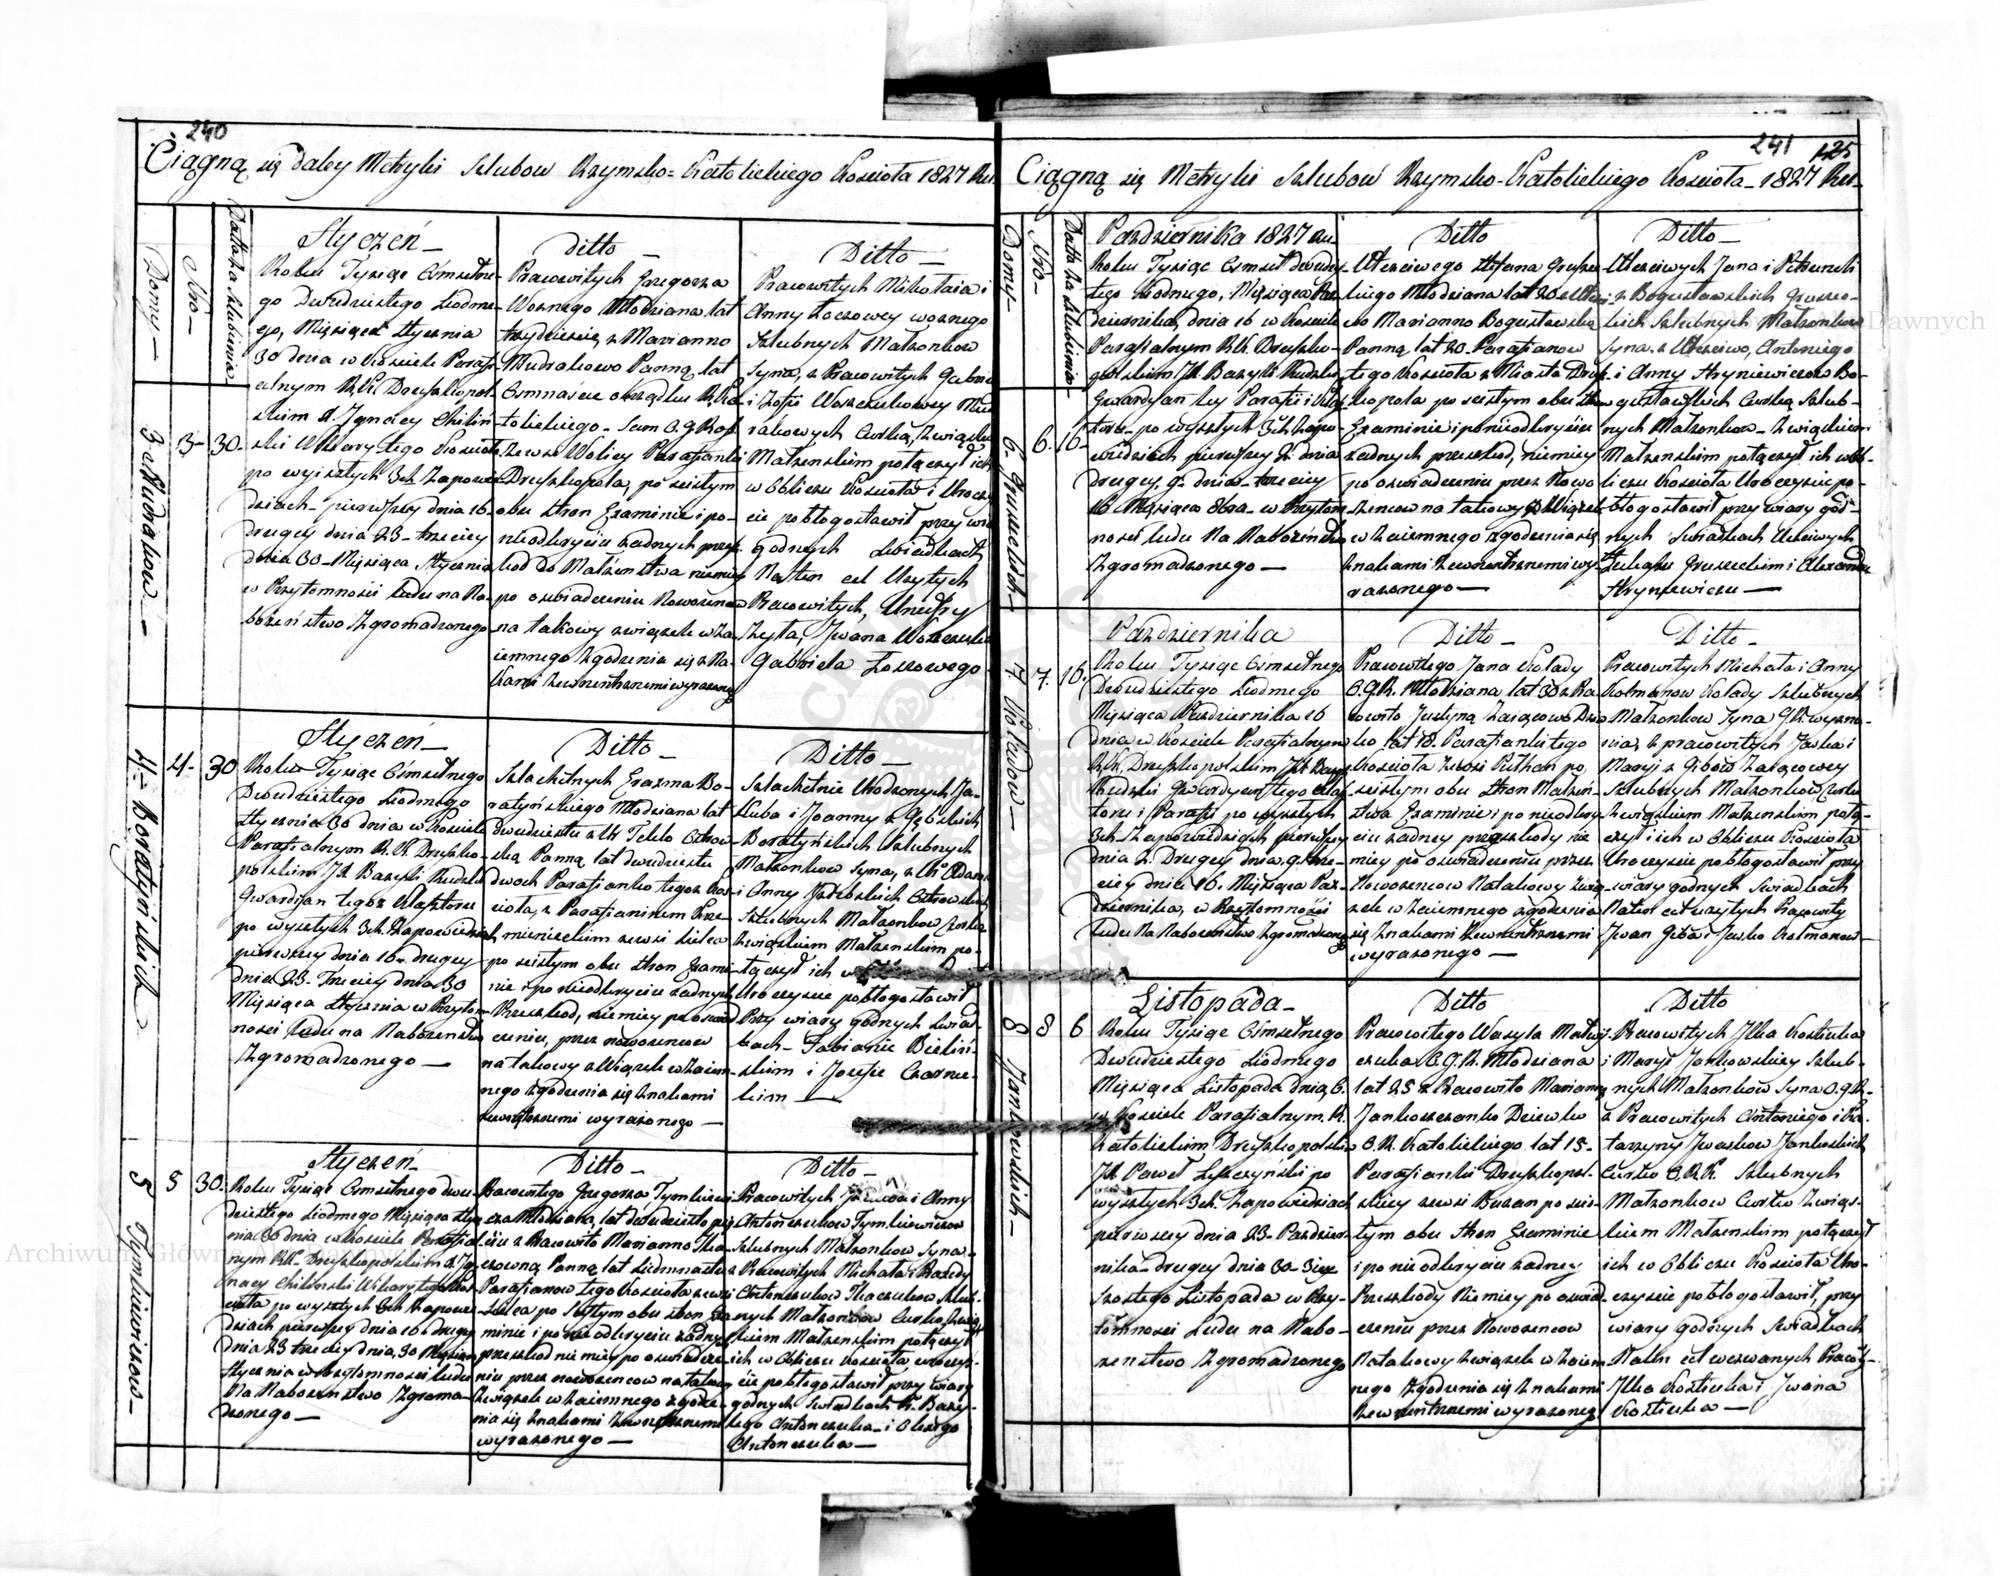 240
Ciągną się daley Metryki Szlubow Rzymsko=Katolickiego Kościoła 1827 Ru.
Domy
Nro
Datta za szlubinia
3 z Mudrakow
3
30
Styczeń
Roku Tysiąc Osmsetne-
go Dwudziestego Siodme-
go, Miesiąca Stycznia
30 dnia w Kościele Parafi-
alnym R.K. Druszkopol-
skim X. Ignacy Chiliń-
ski Wikary tego Kościoła
po wyszłych 3ch Zapowie-
dziach pierwszey dnia 16
drugiey dnia 23 trzeciey
dnia 30 Miesiąca Stycznia
w Przytomności Ludu na Na-
bożeństwo Zgromadzonego
Ditto
Pracowitych Grzegorza
Woznego Młodziana lat
trzydzieści z Maryanno
Mudrakowo Panną lat
Osmnaście obrządku R. Ka-
tolickiego
ze wsi Wolicy Parafianki
Druszkopola, po scisłym
obu stron Examinie i po
nieodkryciu żadnych przesz-
kod do Małżenstwa niemniey
po oswiadczeniu Nowożencow
na takowy związek wza-
iemnego zgodzenia się zna-
kami zewnentrznemi wyrażonego
Ditto
Pracowitych Mikołaia i
Anny Łoszowey woznego
Szlubnych Małżonkow
Syna, z Pracowitych Gabriela
i Zofii Woszczukowey Mud-
rakowych Curką, Związkiem
Małżenskim połączył ich
w Obliczu Kościoła i Urocz-
cie pobłogosławił przy wia-
godnych Swiadkach
Na ten cel Użytych
Pracowitych,
Gabriela Łoszowego
4 Boratyńskich
4
30
Styczeń
Roku Tysiąc Osmsetnego
Dwudziestego Siodmego
Stycznia 30 dnia w Kościele
Parafialnym R.K. Druszko-
polskim JX Bazyli Rudzki
Gwardyan tegoż Klasztoru
po wyszłych 3ch Zapowiedziach
pierwszey dnia 16 drugiey
dnia 23 Trzeciey dnia 30
Miesiąca Stycznia w Przytom-
ności Ludu na Nabożenstwo
Zgromadzonego
Ditto
Szlachetnych Erazma Bo-
ratyńskiego Młodziana lat
dwudziestu z Teklo Ostrow-
ską Panną lat dwudziestu
dwoch Parafianko tegoż Koś-
cioła, z Parafianinem Krze-
mienieckim zewsi Lilea
po scisłym obu stron Exami-
nie i po nieodkryciu żadnych
Przeszkod, niemniey po oswiad-
czeniu, przez nowożencow
na takowy związek wzaiem-
nego zgodzenia się znakami
zewnętrznemi wyrażonego
Ditto
Szlachetnie Urodzonych Ja-
kuba i Joanny z Gębskich
Boratyńskich Szlubnych
Małżonkow Syna, z Adama
i Anny Ostrowskich
Szlubnych Małżonkow Curko
Związkiem Małżenskim po-
łączył ich w
Uroczyscie pobłogosławił
Przy wiary godnych Swiad-
kach Fabianie Bieliń-
skim i Jozefie Czarne-
kim
5 Tymkiewiczow
5
30
Styczeń
Roku Tysiąc Osmsetnego dwu-
dziestego Siodmego Miesiąca Stycz-
nia 30 dnia w Kościele Parafial-
nym R.K. Druszkopolskim X. Ig-
nacy Chiliński Wikary tego Koś-
cioła po wyszłych 3ch Zapowie-
dziach pierwszey dnia 16 drugiey
dnia 23 trzeciey dnia 30 Miesiąca
Stycznia w Przytomności Ludu
Na Nabożenstwo Zgroma-
dzonego
Ditto
Pracowitego Grzegorza Tymkiewi-
cza Młodziana, lat dwudziesto pię-
ciu z Pracowito Marianno Tka-
czowną Panną lat Siedmnastu
Parafianow tego Kościoła zewsi
Lilea po Scisłym obu stron Exa-
minie i po nieodkryciu żadnych
przeszkod niemniey po oswiadcze-
niu przez nowożencow na takowy
Związek wzaiemnego zgodze-
nia się znakami Zewnętrznemi
wyrażonego
Ditto
Pracowitych i Anny
Antonczukow Tymkiewiczow
Szlubnych Małżonkow Syna
z Pracowitych Michała i
Antonczukow Tkaczukow Szlub-
nych Małżonkow Curko Zwią-
zkiem Małżenskim połączył
ich w Obliczu Kościoła uroczys-
cie pobłogosławił przy wiary
godnych Swiadkach P. Bazy-
lego Antonczuka i Olexego
Antonczuka
241 125
Ciągną się Metryki Szlubów Rzymsko-Katolickiego Kościoła 1827 Ru.
Domy
Nro
Datta za szlubinia
6. Gruszeckich
6
16
Pazdziernika 1827 Ru
Roku Tysiąc Osmset dwudzies-
tego Siodmego, Miesiąca Paź-
dziernika, dnia 16 w Kościele
Parafialnym R.K. Druszko-
polskim JX. Bazyli Rudzki
Gwardyan tey Parafii i Klasz-
toru po wyszłych 3ch Zapo-
wiedziach pierwszey 2 dnia
drugiey 9 dnia trzeciey
16 Miesiąca 8bra w Przytom-
ności Ludu Na Nabożeństwo
Zgromadzonego
Ditto
Uczciwego Stefana Grusze-
ckiego Młodziana lat 20 z Uczci-
wo Marianno Bogusławską
Panną, lat 20 Parafianow
tego Kościoła z Miasta Drusz-
kopola po scisłym obu stron
Examinie i ponieodkryciu
żadnych przeszkod, niemniey
po oswiadczeniu przez Nowo-
żencow na takowy Związek
wzaiemnego zgodzenia się
znakami Zewnentrznemi wy-
rażonego
Ditto
Uczciwych Jana i Petruneli
z Bogusławskich Grusze-
ckich Szlubnych Małżonkow
Syna, z Uczciwo, Antoniego
i Anny Hryniewiczow Bo-
gusławskich Curką Szlub-
nych Małżonkow Związkiem
Małżenskim połączył ich w Ob-
liczu Kościoła Uroczyscie po-
błogosławił przy wiary god-
nych Swiadkach Uczciwych
Łukaszu Gruszeckim i Alexandrze
Hryniewiczu
7 Koladow
7.
16.
Pazdziernika
Roku Tysiąc Osmsetnego
Dwudziestego Siodmego
Miesiąca Pazdziernika 16
dnia w Kościele Parafialnym
R.K. Druszkopolskim JX Bazyli
Rudzki Gwardyan tego Klasz-
toru i Parafii po wyszłych
3ch Zapowiedziach pierwszey
dnia 2. Drugiey dnia 9. trze-
ciey dnia 16. Miesiąca Paź-
dziernika, w Przytomności
Ludu Na Nabożenstwo Zgromadzonego
Ditto
Pracowitego Jana Kolady
O.G.R. Młodziana lat 30 z Pra-
cowito Justyną Zaiącowo Dziew-
ko lat 18. Parafianki tego
Kościoła Zewsi Pilhan po
scisłym obu Stron Małżeń-
stwa Examinie i po nieodkry-
ciu żadney przeszkody nie
mniey po oswiadczeniu przez
Nowożencow Na takowy Zwią-
zek wzaiemnego zgodzenia
się Znakami Zewnentrznemi
wyrażonego
Ditto
Pracowitych Michała i Anny
Kotmanow Kolady Szlubnych
Małżonkow Syna G.R. wyzna-
nia, z pracowitych Jaśka i
Maryi z Gibów Zaiącowey
Szlubnych Małżonkow, Curko
Związkiem Małżenskim połą-
czył ich w Obliczu Kościoła
Uroczyscie pobłogosławił przy
wiary godnych Swiadkach
Na ten cel użytych Pracowity
Jwan Giba i Jasko Kotmanow
8 Jankowskich
8
6
Listopada
Roku Tysiąc Osmsetnego
Dwudziestego Siodmego
Miesiąca Listopada dnia 6.
w Kościele Parafialnym R.
Katolickim Druszkopolskim
JX Paweł Łyszczyński po
wyszłych 3ch Zapowiedziach
pierwszey dnia 23 Pazdzier-
nika drugiey dnia 30 3ciey
Szostego Listopada w Przy-
tomności Ludu na Nabo-
żenstwo Zgromadzonego
Ditto
Pracowitego Wasyla
O.G.R. Młodziana
lat 25 z Pracowito Marianną
Jankoszczanko Dziewko
O.R. Katolickiego lat 18
Parafianki Druszkopol-
skiey zewsi Buzan po scis-
łym obu Stron Examinie
i po nieodkryciu żadney
Przeszkody Niemniey po oswiad-
czeniu przez Nowożencow
Na takowy Związek wzaiem-
nego Zgodzenia się Znakami
Zewnentrznemi wyrażonego
Ditto
Pracowitych Jlka Kosteuka
i Maryi Jankowskiey Szlub-
nych Małżonków Syna O.G.R.
z Pracowitych Antoniego i Ka-
tarzyny Jwaskow Jankoskich
Curko O.R.K. Szlubnych
Małżonkow Curko Związ-
kiem Małżenskim połączył
ich w Obliczu Kościoła Uro-
czyscie pobłogosławił, przy
wiary godnych Swiadkach
Na ten cel wezwanych Pracowi-
Jlka Kosteuka i Jwana
Kosteuka
Archiwum Główne Akt Dawnych